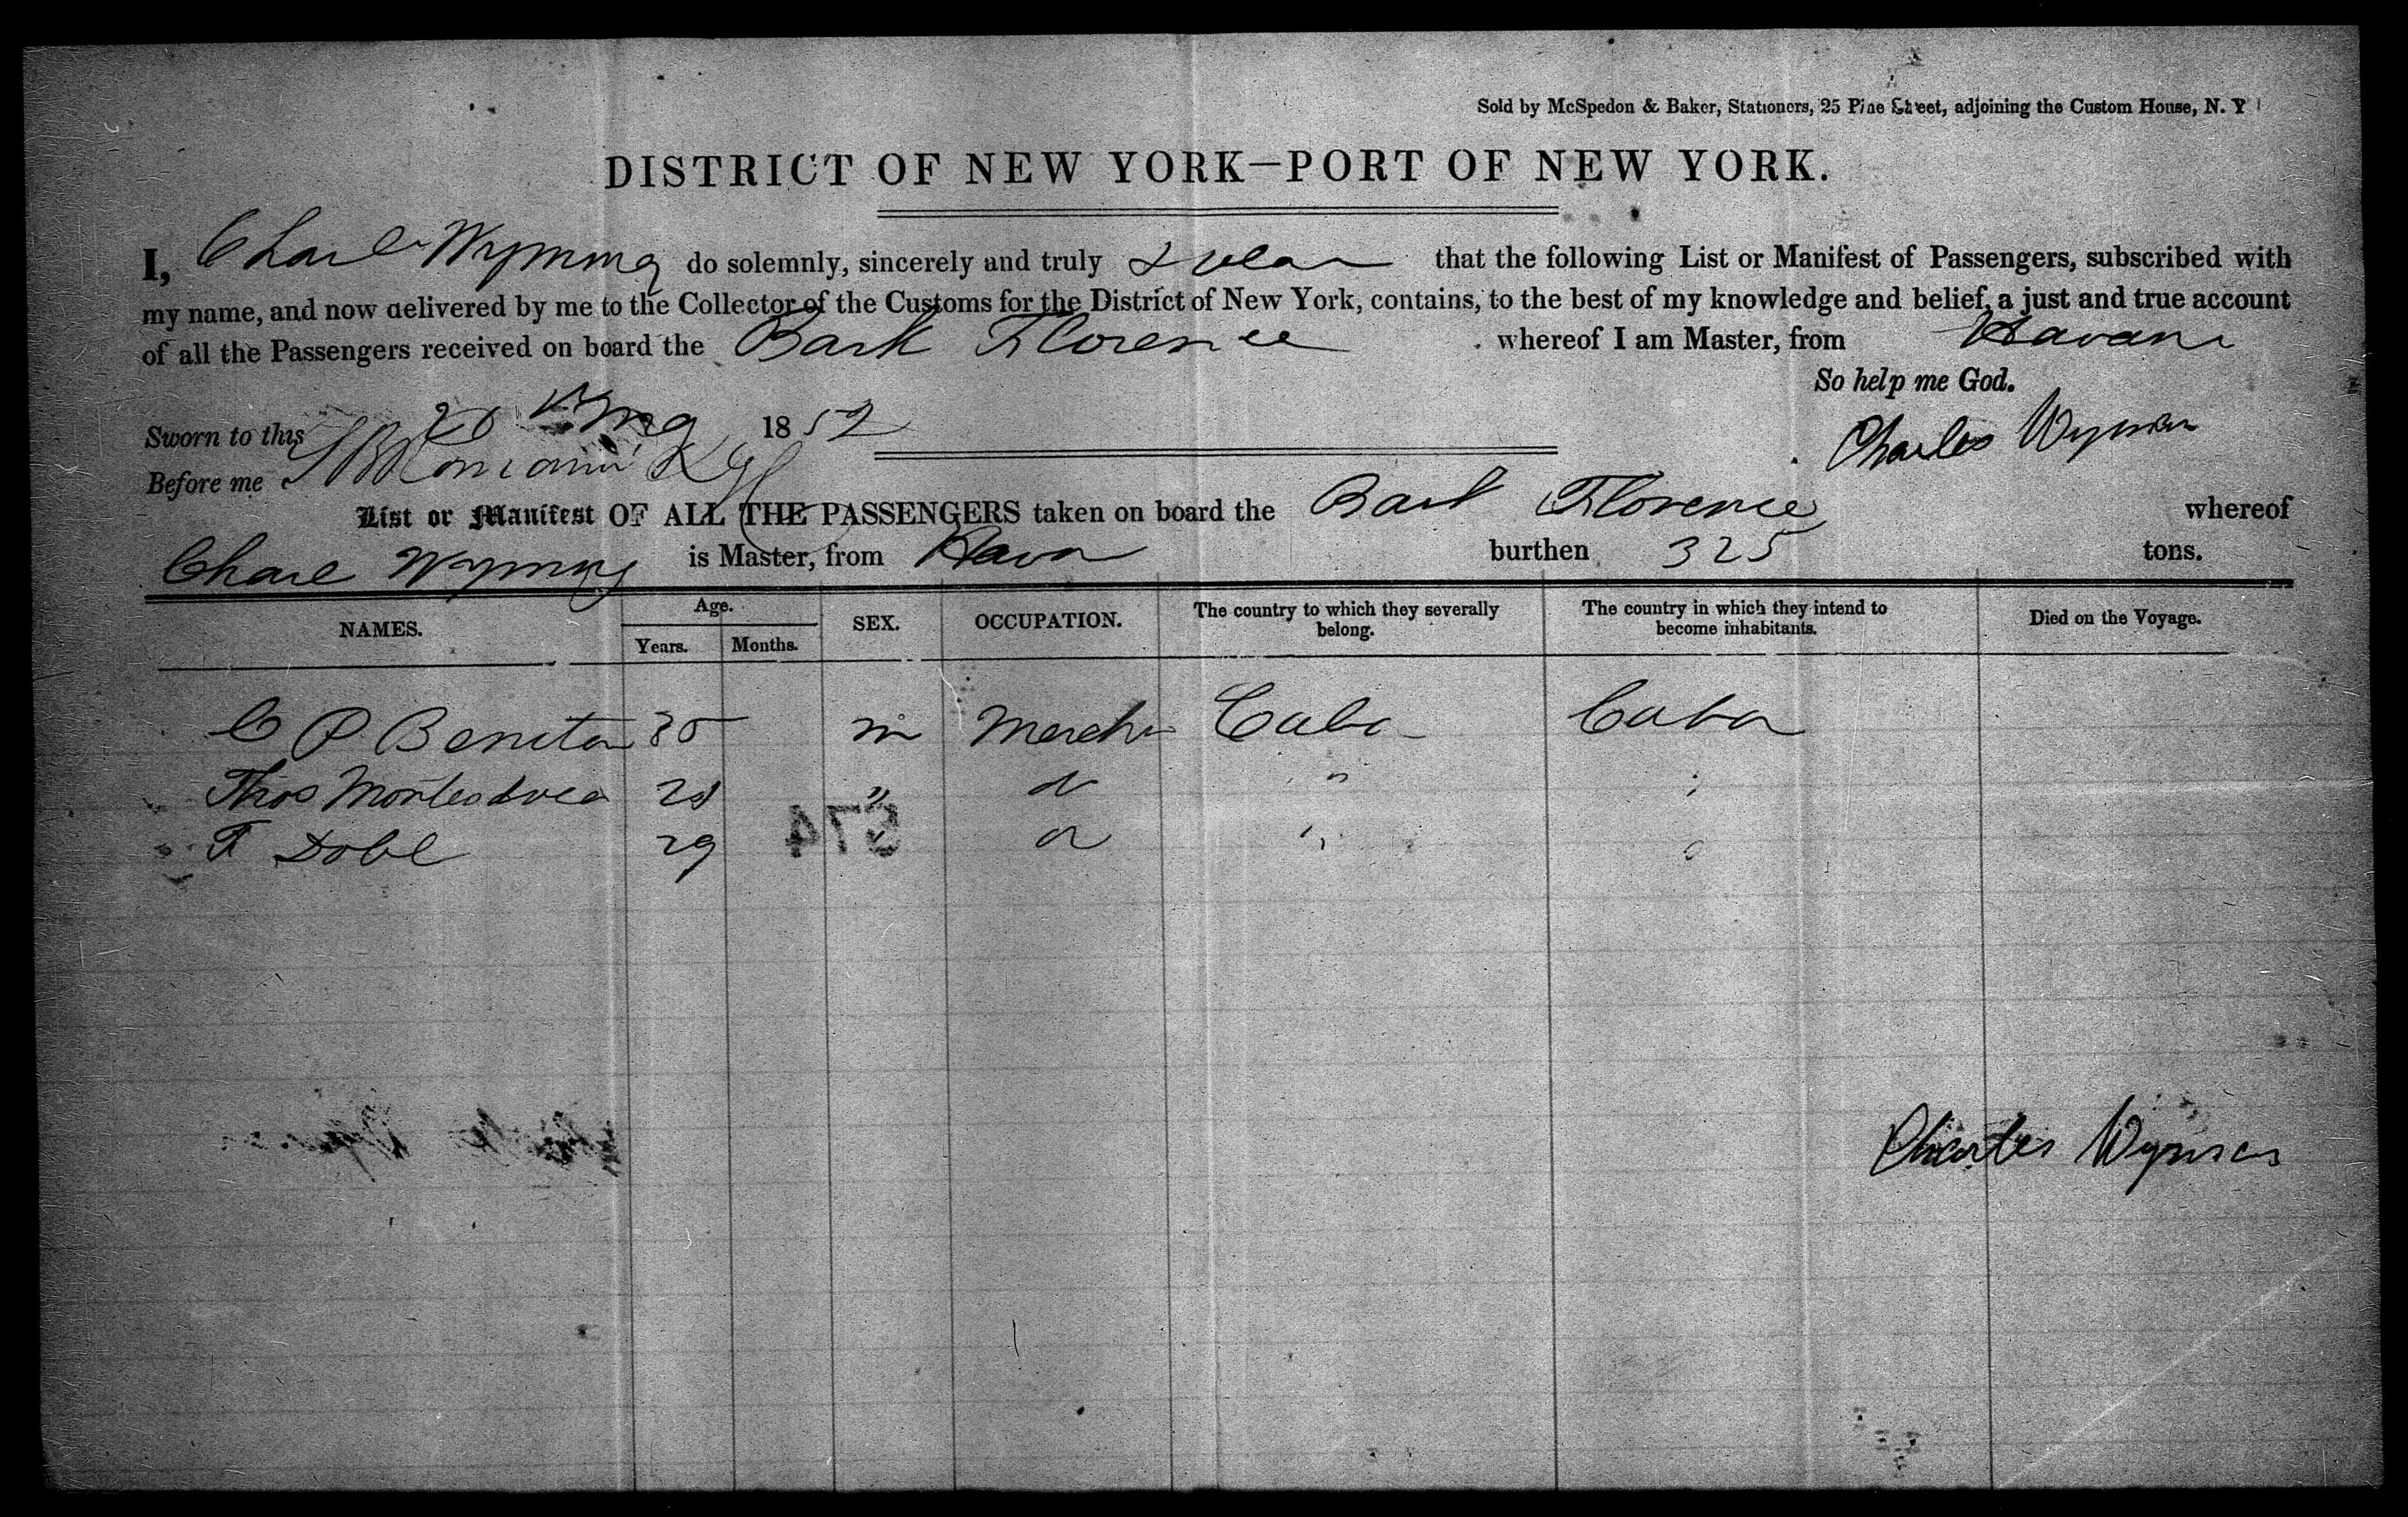 Sold by McSpedon & Baker, Stationers, 25 Pine Street, adjoining the Custom House, N. Y
DISTRICT OF NEW YORK—PORT OF NEW YORK.
I, Charl Wyman do solemnly, sincerely and truly that the following List or Manifest of Passengers, subscribed with
my name, and now delivered by me to the Collector of the Customs for the District of New York, contains, to the best of my knowledge and belief, a just and true account
of all the Passengers received on board the Bark Florence whereof I am Master, from Havana
So help me God.
Sworn to this 20 1852
Charles Wyman
Before me
List or Manifest OF ALL THE PASSENGERS taken on board the Bark Florence whereof
Charl Wyman is Master, from Hava burthen 325 tons.
NAMES. Age. Years. Months. SEX. OCCUPATION. The country to which they severally belong. The country in which they intend to become inhabitants. Died on the Voyage.
C P Benita 30 m Mercht Cuba Cuba
Thos 28 " "
F Dobl 29 " "
574
Charles Wyman